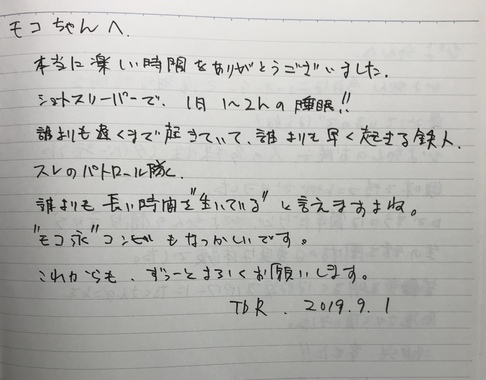 モコちゃんへ.
本当に楽しい時間をありがとうございました.
ショートスリーパーで、1日 1〜2hの睡眠!!
誰よりも遅くまで起きていて、誰よりも早く起きる鉄人.
スレのパトロール隊に
誰よりも 長い時間を"生いている" と言えますよね。
"モコ永"コンビも なつかしいです。
これからも、ずーっとよろしくお願いします。
TbR . 2019. 9. 1